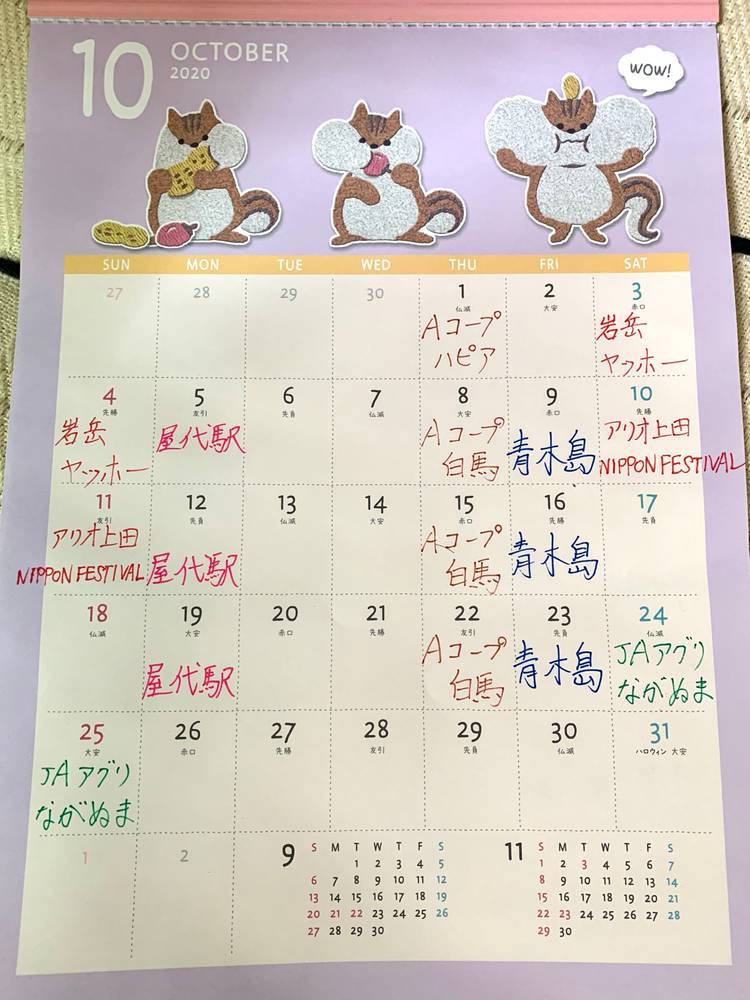 10 OCTOBER
2020
WOW!
SUN MON TUE WED THU FRI SAT
27 28 29 30 1 2 3
仏滅 大安 赤口
Aコープ 岩岳
ハピア ヤッホー
4 5 6 7 8 9 10
先勝 友引 先負 仏滅 大安 赤口 先勝
岩岳 屋代駅 Aコープ 青木島 アリオ上田
ヤッホー 白馬 NIPPON FESTIVAL
11 12 13 14 15 16 17
友引 先負 仏滅 大安 赤口 先勝 先負
アリオ上田 屋代駅 Aコープ 青木島
NIPPON FESTIVAL 白馬
18 19 20 21 22 23 24
仏滅 大安 赤口 先勝 友引 先負 仏滅
屋代駅 Aコープ 青木島 JAアグリ
白馬 ながぬま
25 26 27 28 29 30 31
大安 赤口 先勝 友引 先負 仏滅 ハロウィン 大安
JAアグリ
ながぬま
1 2
9 S M T W T F S
1 2 3 4 5
6 7 8 9 10 11 12
13 14 15 16 17 18 19
20 21 22 23 24 25 26
27 28 29 30
11 S M T W T F S
1 2 3 4 5 6 7
8 9 10 11 12 13 14
15 16 17 18 19 20 21
22 23 24 25 26 27 28
29 30